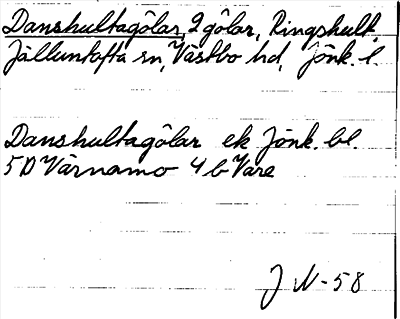 Danshultagölar, 2 gölar, Ringshult
Jälluntofta sn, Västbo hd, Jönk. l.
Danshultagölar ek Jönk. bl.
5D Värnamo 4 b Vare
J N-58